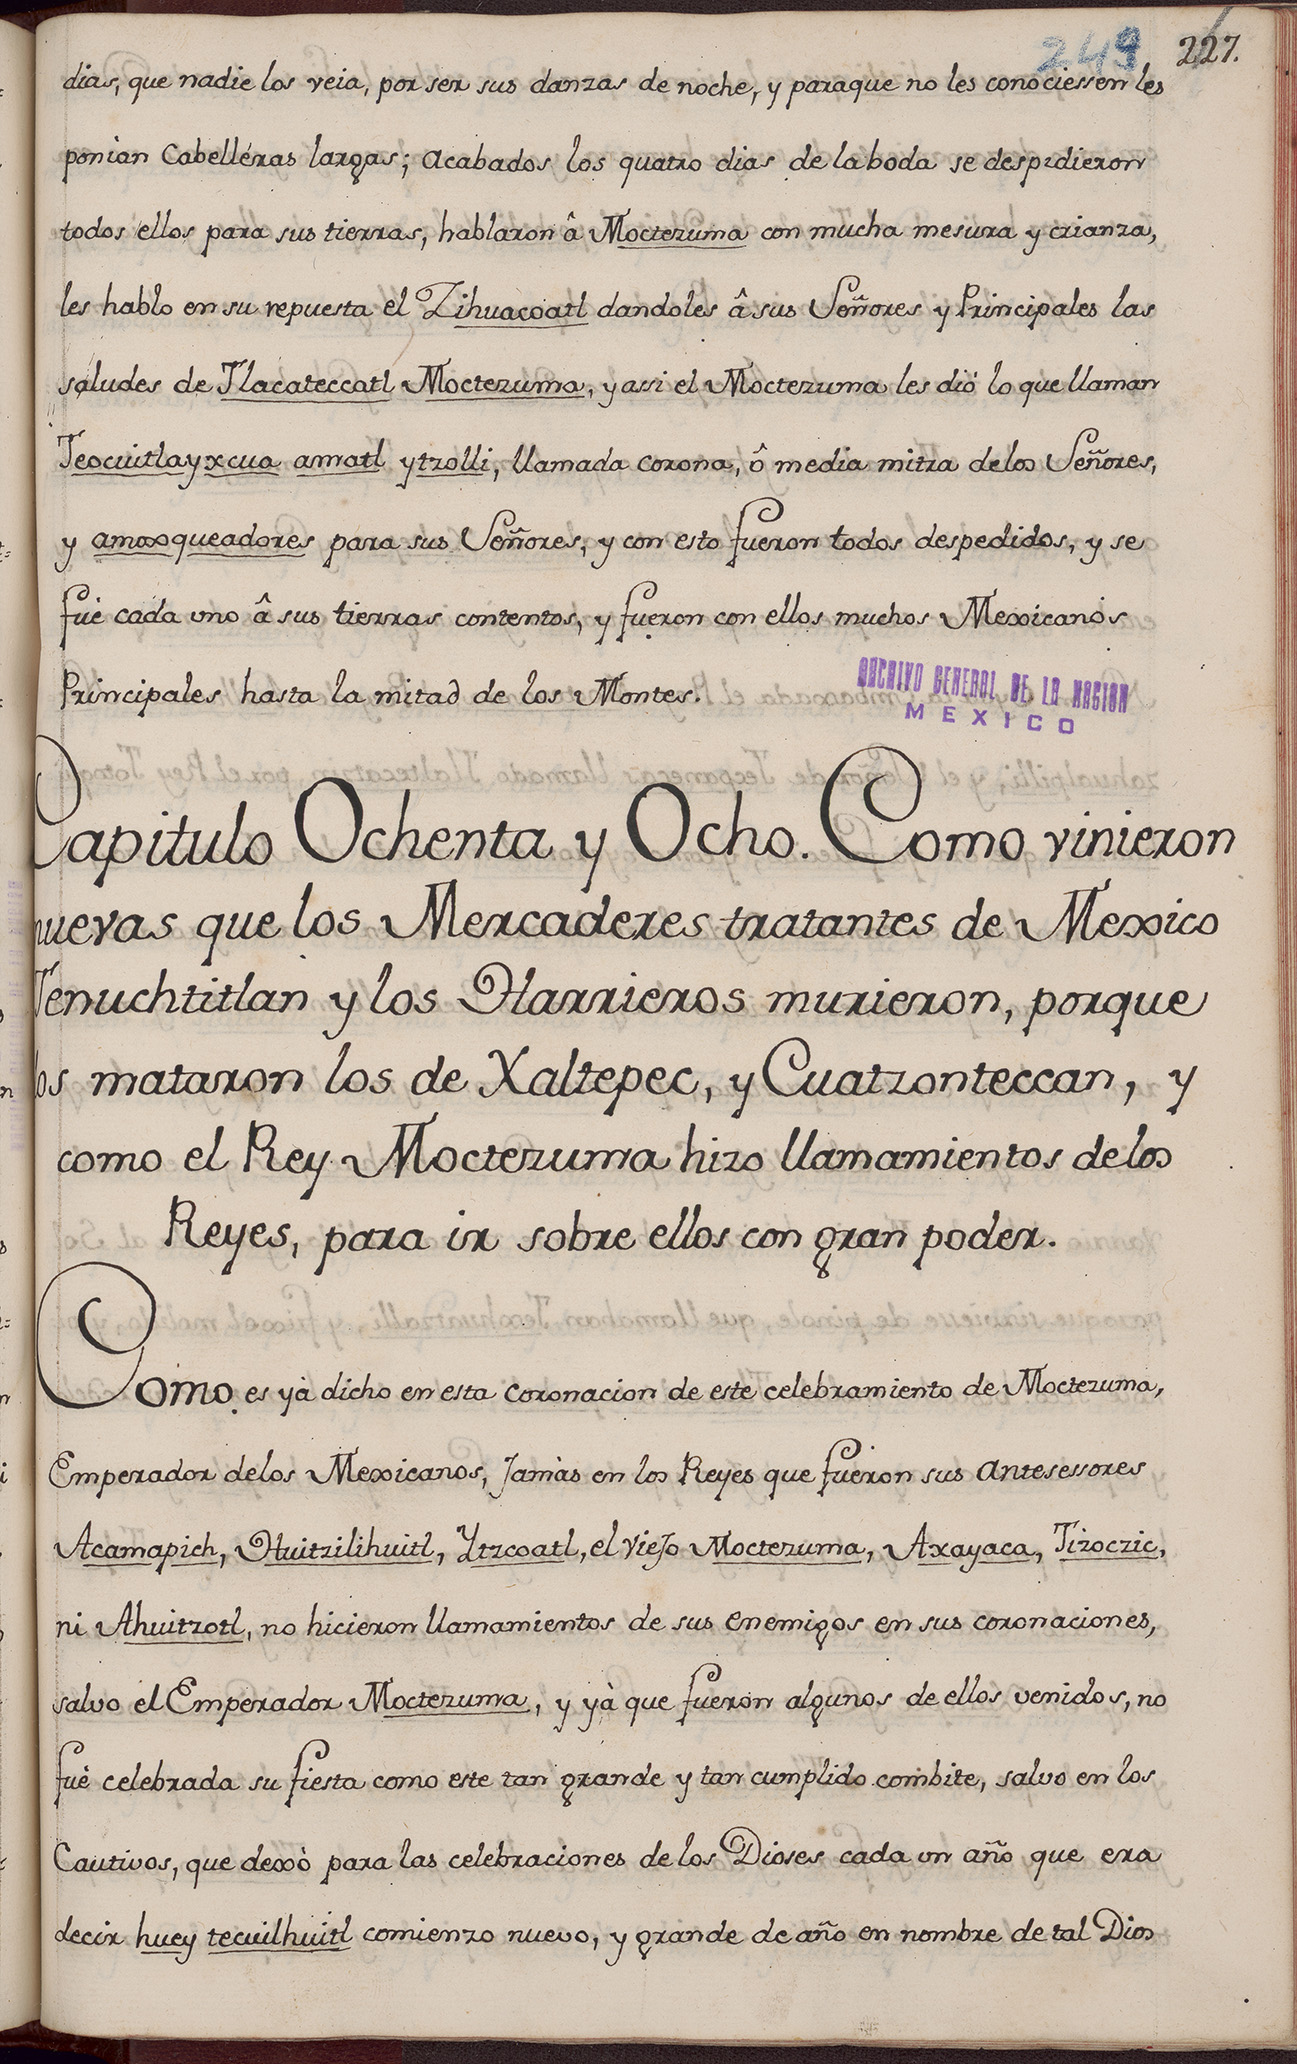 249 227.
dias, que nadie los veia, por ser sus danzas de noche, y paraque no les conociessen les
ponian Cabelléras largas; acabados los quatro dias de la boda se despidieron
todos ellos para sus tierras, hablaron â Moctezuma con mucha mesura y crianza,
les hablo en su repuesta el Zihuacoatl dandoles â sus Señores y Principales las
saludes de Tlacateccatl Moctezuma, y assi el Moctezuma les dió lo que llaman
Teocuitlayxcua amatl ytzolli, llamada corona, ô media mitra delos Señores,
y amoxqueadores para sus Señores, y con esto fueron todos despedidos, y se
fué cada uno â sus tierras contentos, y fueron con ellos muchos Mexicanos
Principales hasta la mitad de los Montes.
ARCHIVO GENERAL DE LA NACION
MEXICO
Capitulo Ochenta y Ocho. Como vinieron
nuevas que los Mercaderes tratantes de Mexico
Tenuchtitlan y los Harrieros murieron, porque
los mataron los de Xaltepec, y Cuatzonteccan, y
como el Rey Moctezuma hizo llamamientos delos
Reyes, para ir sobre ellos con gran poder.
Como es yà dicho en esta coronacion de este celebramiento de Moctezuma,
Emperador delos Mexicanos, Jamàs en los Reyes que fueron sus antesessores
Acamapich, Huitzilihuitl, Ytzcoatl, el Viejo Moctezuma, Axayaca, Tizoczic,
ni Ahuitzotl, no hicieron llamamientos de sus enemigos en sus coronaciones,
salvo el Emperador Moctezuma, y yà que fueron algunos de ellos venidos, no
fuè celebrada su fiesta como este tan grande y tan cumplido combite, salvo en los
Cautivos, que dexò para las celebraciones de los Dioses cada un año que era
decir huey tecuilhuitl comienzo nuevo, y grande de año en nombre de tal Dios